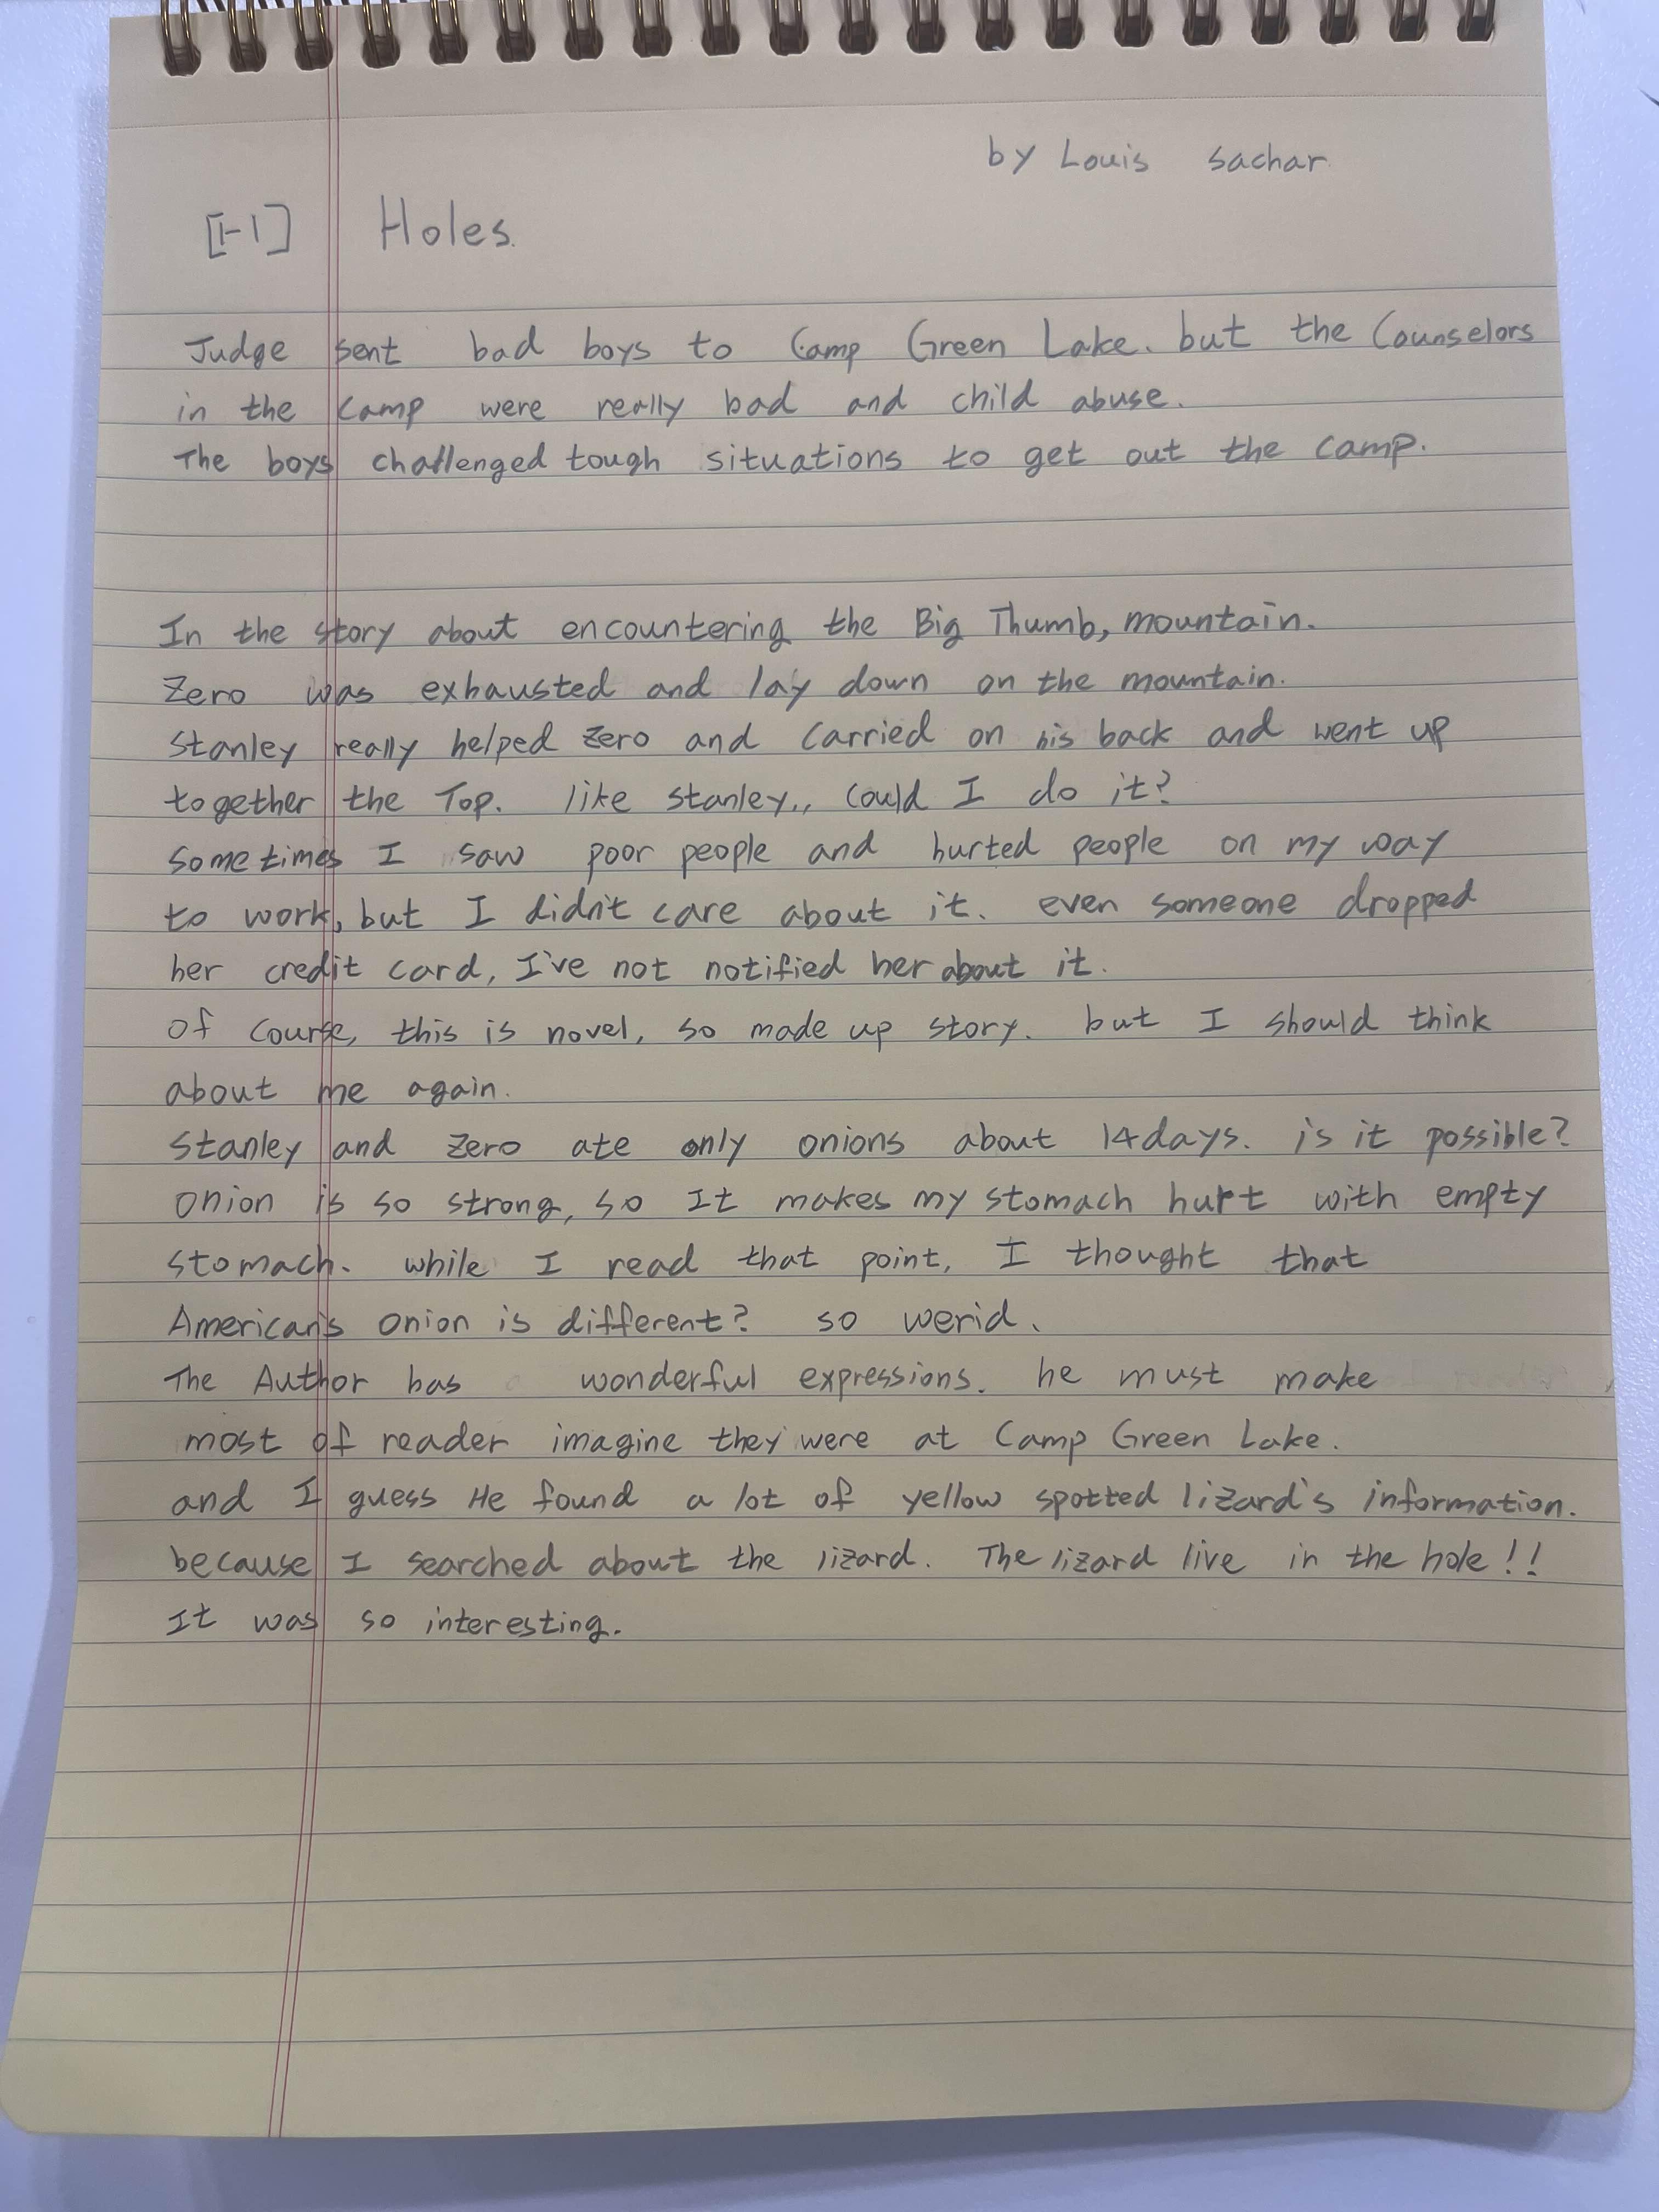 by Louis sachar
[1-1] Holes.
Judge sent bad boys to Camp Green Lake. but the Counselors
in the camp were really bad and child abuse.
The boys challenged tough situations to get out the camp.
In the story about encountering the Big Thumb, mountain.
Zero was exhausted and lay down on the mountain.
Stanley really helped Zero and carried on his back and went up
together the Top. like Stanley., Could I do it?
Sometimes I saw poor people and hurted people on my way
to work, but I didn't care about it. even someone dropped
her credit card, I've not notified her about it.
Of course, this is novel, so made up story. but I should think
about me again.
Stanley and Zero ate only onions about 14days. is it possible?
Onion is so strong, so It makes my stomach hurt with empty
stomach. while I read that point, I thought that
American's onion is different? so werid.
The Author has wonderful expressions. he must make
most of reader imagine they were at Camp Green Lake.
and I guess He found a lot of yellow spotted lizard's information.
because I searched about the lizard. The lizard live in the hole!!
It was so interesting.